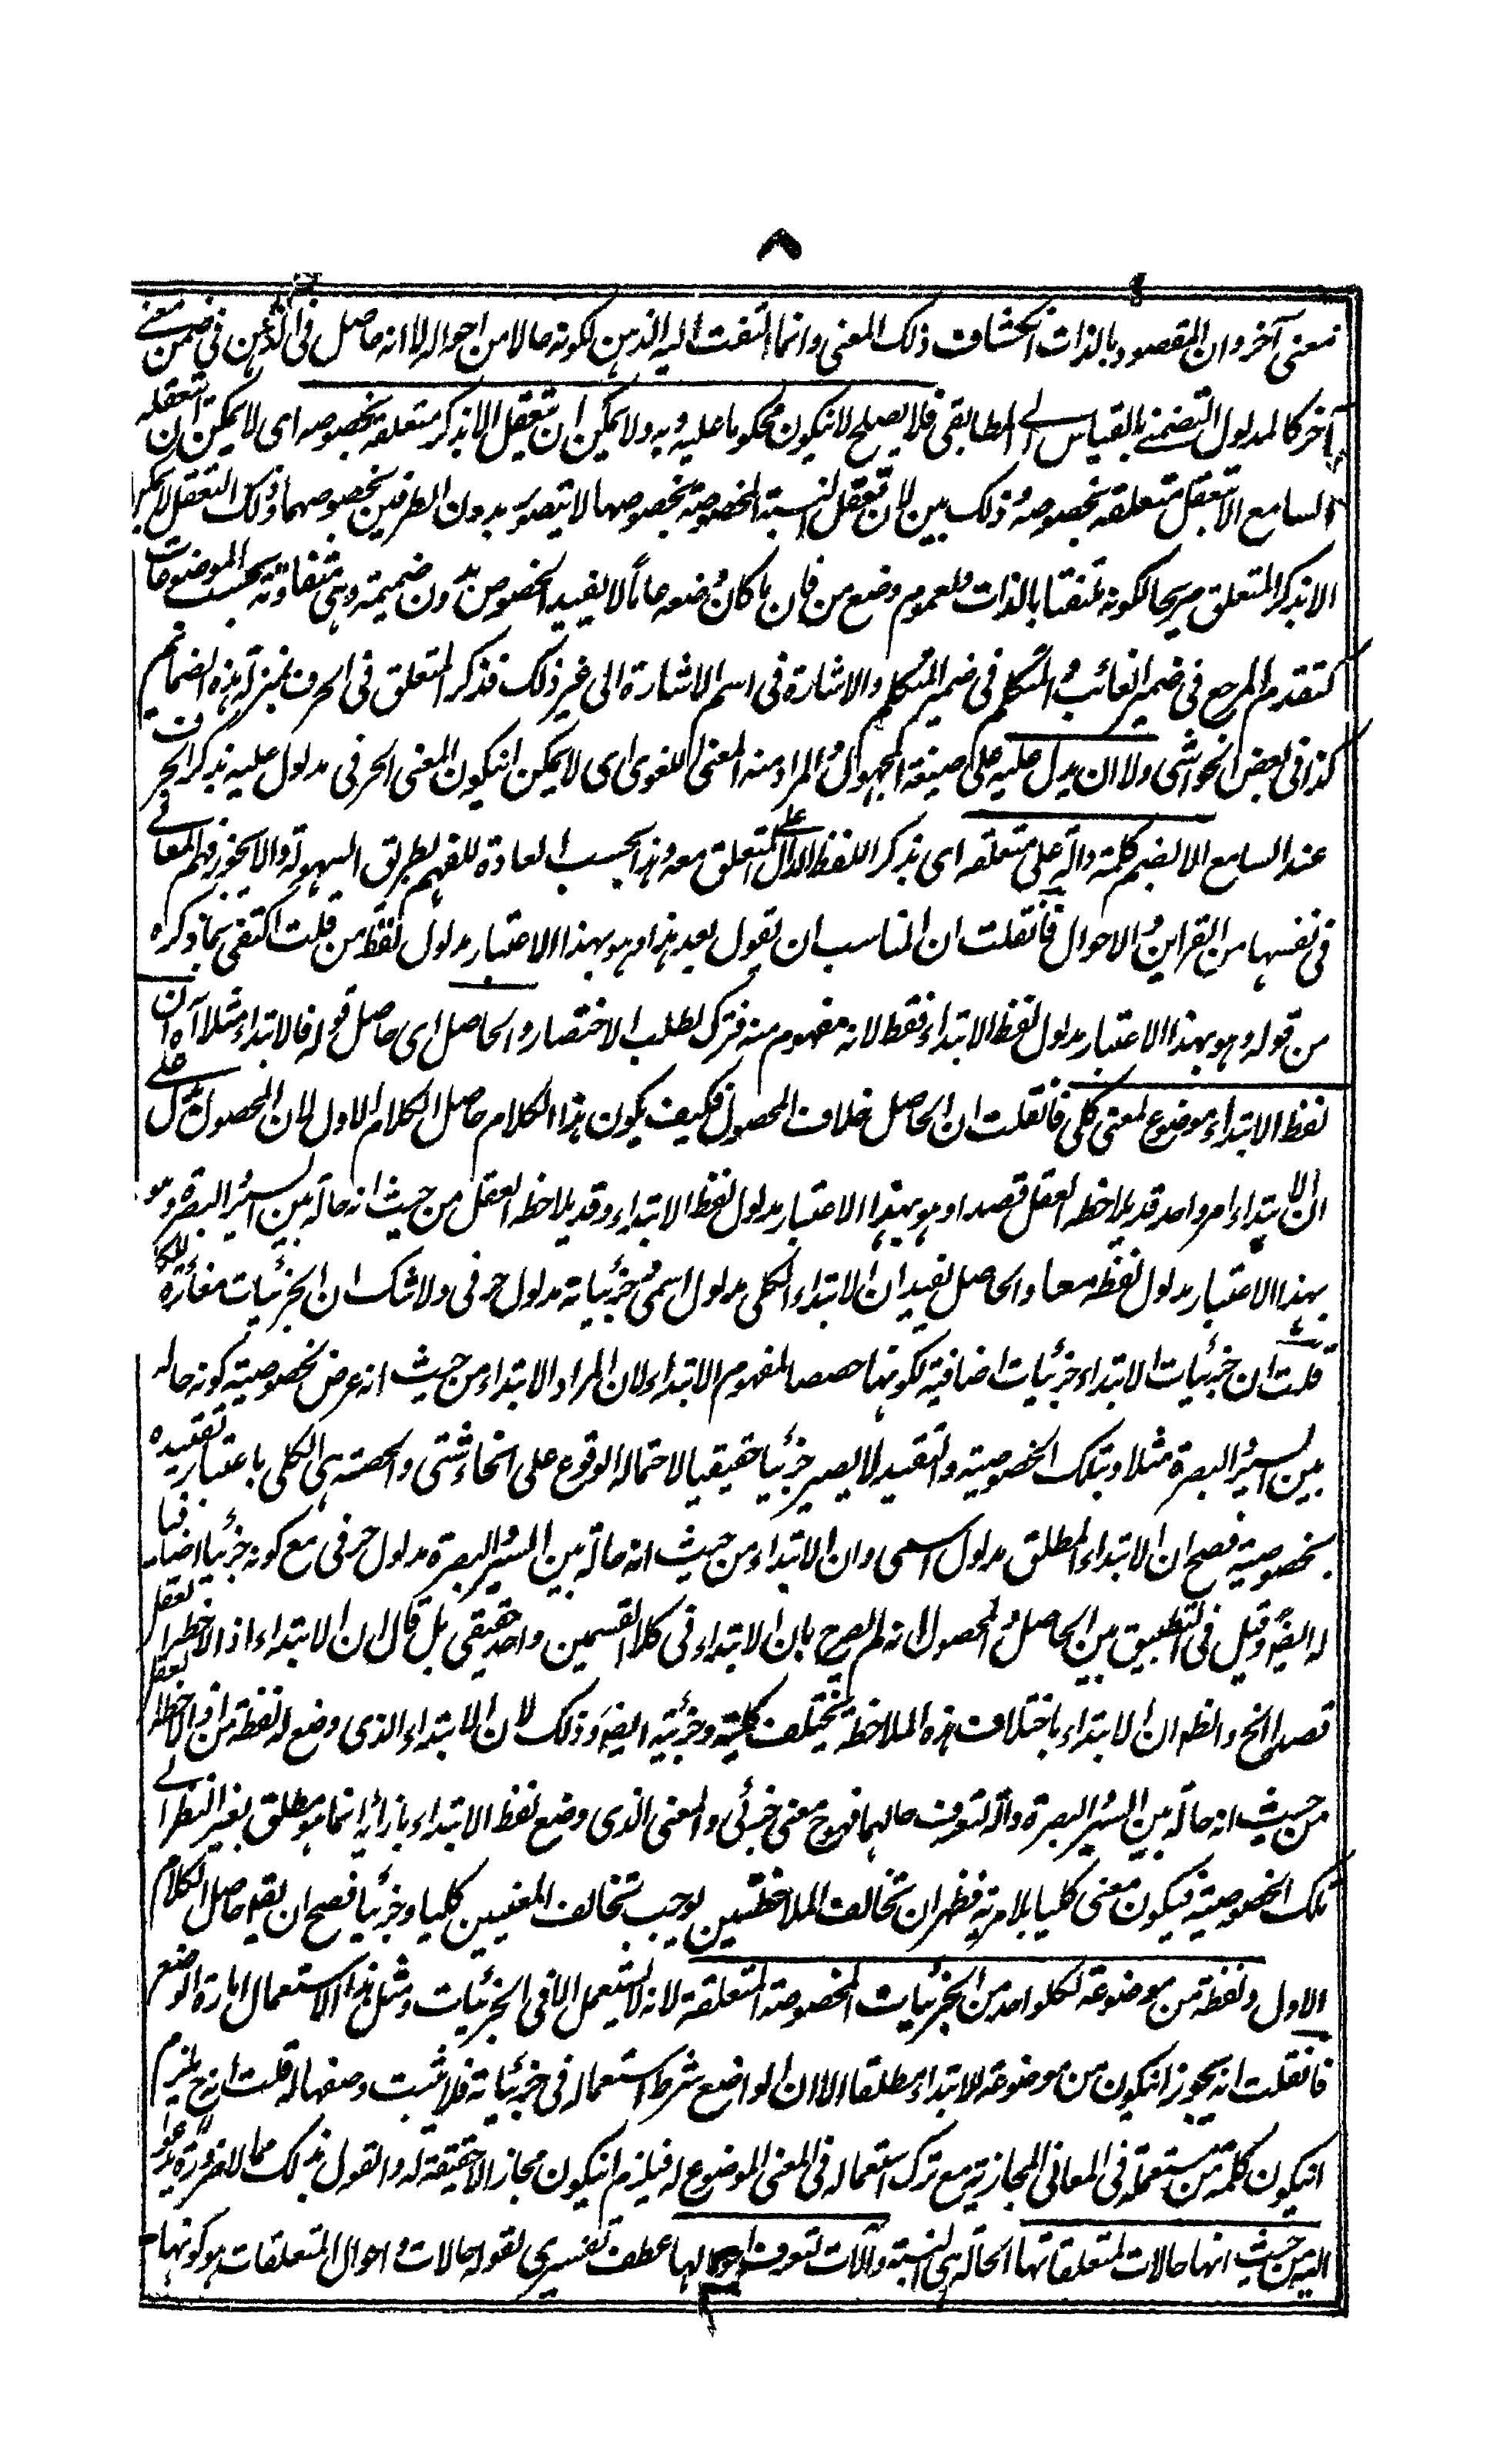 ٨
معنى آخر وان المقصود بالذات انكشاف ذلك المعنى وانما التفت اليه الذهن لكونه حالا من احواله لا انه حاصل فى الذهن فى ضمن معنى
آخر كالمدلول التضمنى بالقياس الى المطابقى فلا يصلح لانيكون محكوما عليه وبه ولا يمكن ان يتعقل الا بذكر متعلقه بخصوصه اى لا يمكن ان يتعقله
السامع الا بتعقل متعلقه بخصوصه وذلك بين لان تعقل النسبة المخصوصة بخصوصها لا يتصور بدون الطرفين بخصوصهما وذلك التعقل لا يمكن
الا بذكر المتعلق صريحا لكونه ملتفتا بالذات ولعموم وضع من فان ما كان وضعه عاما لا يفيد الخصوص بدون ضميمة وهى متفاوتة بحسب الموضوعات
كتقدم المرجع فى ضمير الغائب والمتكلم فى ضمير المتكلم والاشارة فى اسم الاشارة الى غير ذلك فذكر المتعلق فى الحرف بمنزلة هذه الضمائم
كذا فى بعض الحواشى ولا ان يدل عليه على صيغة المجهول والمراد منه المعنى اللغوى اى لا يمكن انيكون المعنى الحرفى مدلول عليه بذكر الحرف
عند السامع الا بضم كلمة دالة على متعلقه اى بذكر اللفظ الدال على المتعلق معه وهذا بحسب العادة للفهم بطريق السهولة والا يجوز فهم المعانى
فى نفسها من القراين والاحوال فانقلت ان المناسب ان يقول بعد هذا وهو بهذا الاعتبار مدلول لفظ من قلت اكتفى بما ذكره
من قوله وهو بهذا الاعتبار مدلول لفظ الابتداء فقط لانه مفهوم منه فترك لطلب الاختصار والحاصل اى حاصل قوله فالابتداء مثلا آه ان
لفظ الابتداء موضوع لمعنى كلى فانقلت ان الحاصل خلاف المحصول فكيف يكون هذا الكلام حاصل الكلام الاول لان المحصول يدل على
ان الابتداء امر واحد قد يلاحظه العقل قصدا وهو بهذا الاعتبار مدلول لفظ الابتداء وقد يلاحظه العقل من حيث انه حالة بين السير والبصرة وهو
بهذا الاعتبار مدلول لفظه معا والحاصل يفيد ان الابتداء الكلى مدلول اسمى وجزئياته مدلول حرفى ولا شك ان الجزئيات مغائرة للكلى
قلت ان جزئيات الابتداء جزئيات اضافية لكونها حصصا لمفهوم الابتداء لان المراد الابتداء من حيث انه عرض بخصوصية كونه حالة
بين السير والبصرة مثلا وبتلك الخصوصية والتقييد لا يصير جزئيا حقيقيا لاحتماله الوقوع على انحاء شتى والحصة هى الكلى باعتبار تقييده
بخصوصية فصح ان الابتداء المطلق مدلول اسمى وان الابتداء من حيث انه حالة بين السير والبصرة مدلول حرفى مع كونه جزئيا اضافيا
له ايضا وقيل فى التطبيق بين الحاصل والمحصول انه لم يصرح بان الابتداء فى كلا القسمين واحد حقيقى بل قال ان الابتداء اذا لاحظه العقل
قصدا الخ والظ ان الابتداء باختلاف هذه الملاحظة يختلف كلية وجزئية ايضا وذلك لان الابتداء الذى وضع له لفظة من اذا لاحظه العقل
من حيث انه حالة بين السير والبصرة وآلة لتعرف حالهما فهو ح معنى جزئى والمعنى الذى وضع لفظ الابتداء بازائه انما هو مطلق بغير النظر الى
تلك الخصوصية فيكون معنى كليا بلا مرية فظهر ان تخالف الملاحظتين يوجب تخالف المعنيين كليا وجزئيا فصح ان يقع حاصل الكلام
الاول ولفظة من موضوعة لكلواحد من الجزئيات المخصوصة المتعلقة لانه لا يستعمل الا فى الجزئيات ومثل هذا الاستعمال امارة الوضع
فانقلت انه يجوز انيكون من موضوعة للابتداء مطلقا الا ان الواضع شرط استعماله فى جزئياته فلا يثبت وضعها له قلت انه ح يلزم
انيكون كلمة من مستعملة فى المعانى المجازية مع ترك استعماله فى المعنى الموضوع له فيلزم انيكون مجازا لا حقيقة له والقول بذلك مما لا ضرورة
اليه من حيث انها حالات لمتعلقاتها الحالة هى النسبة وآلات لتعرف احوالها عطف تفسيرى لقوله حالات واحوال المتعلقات هو كونها